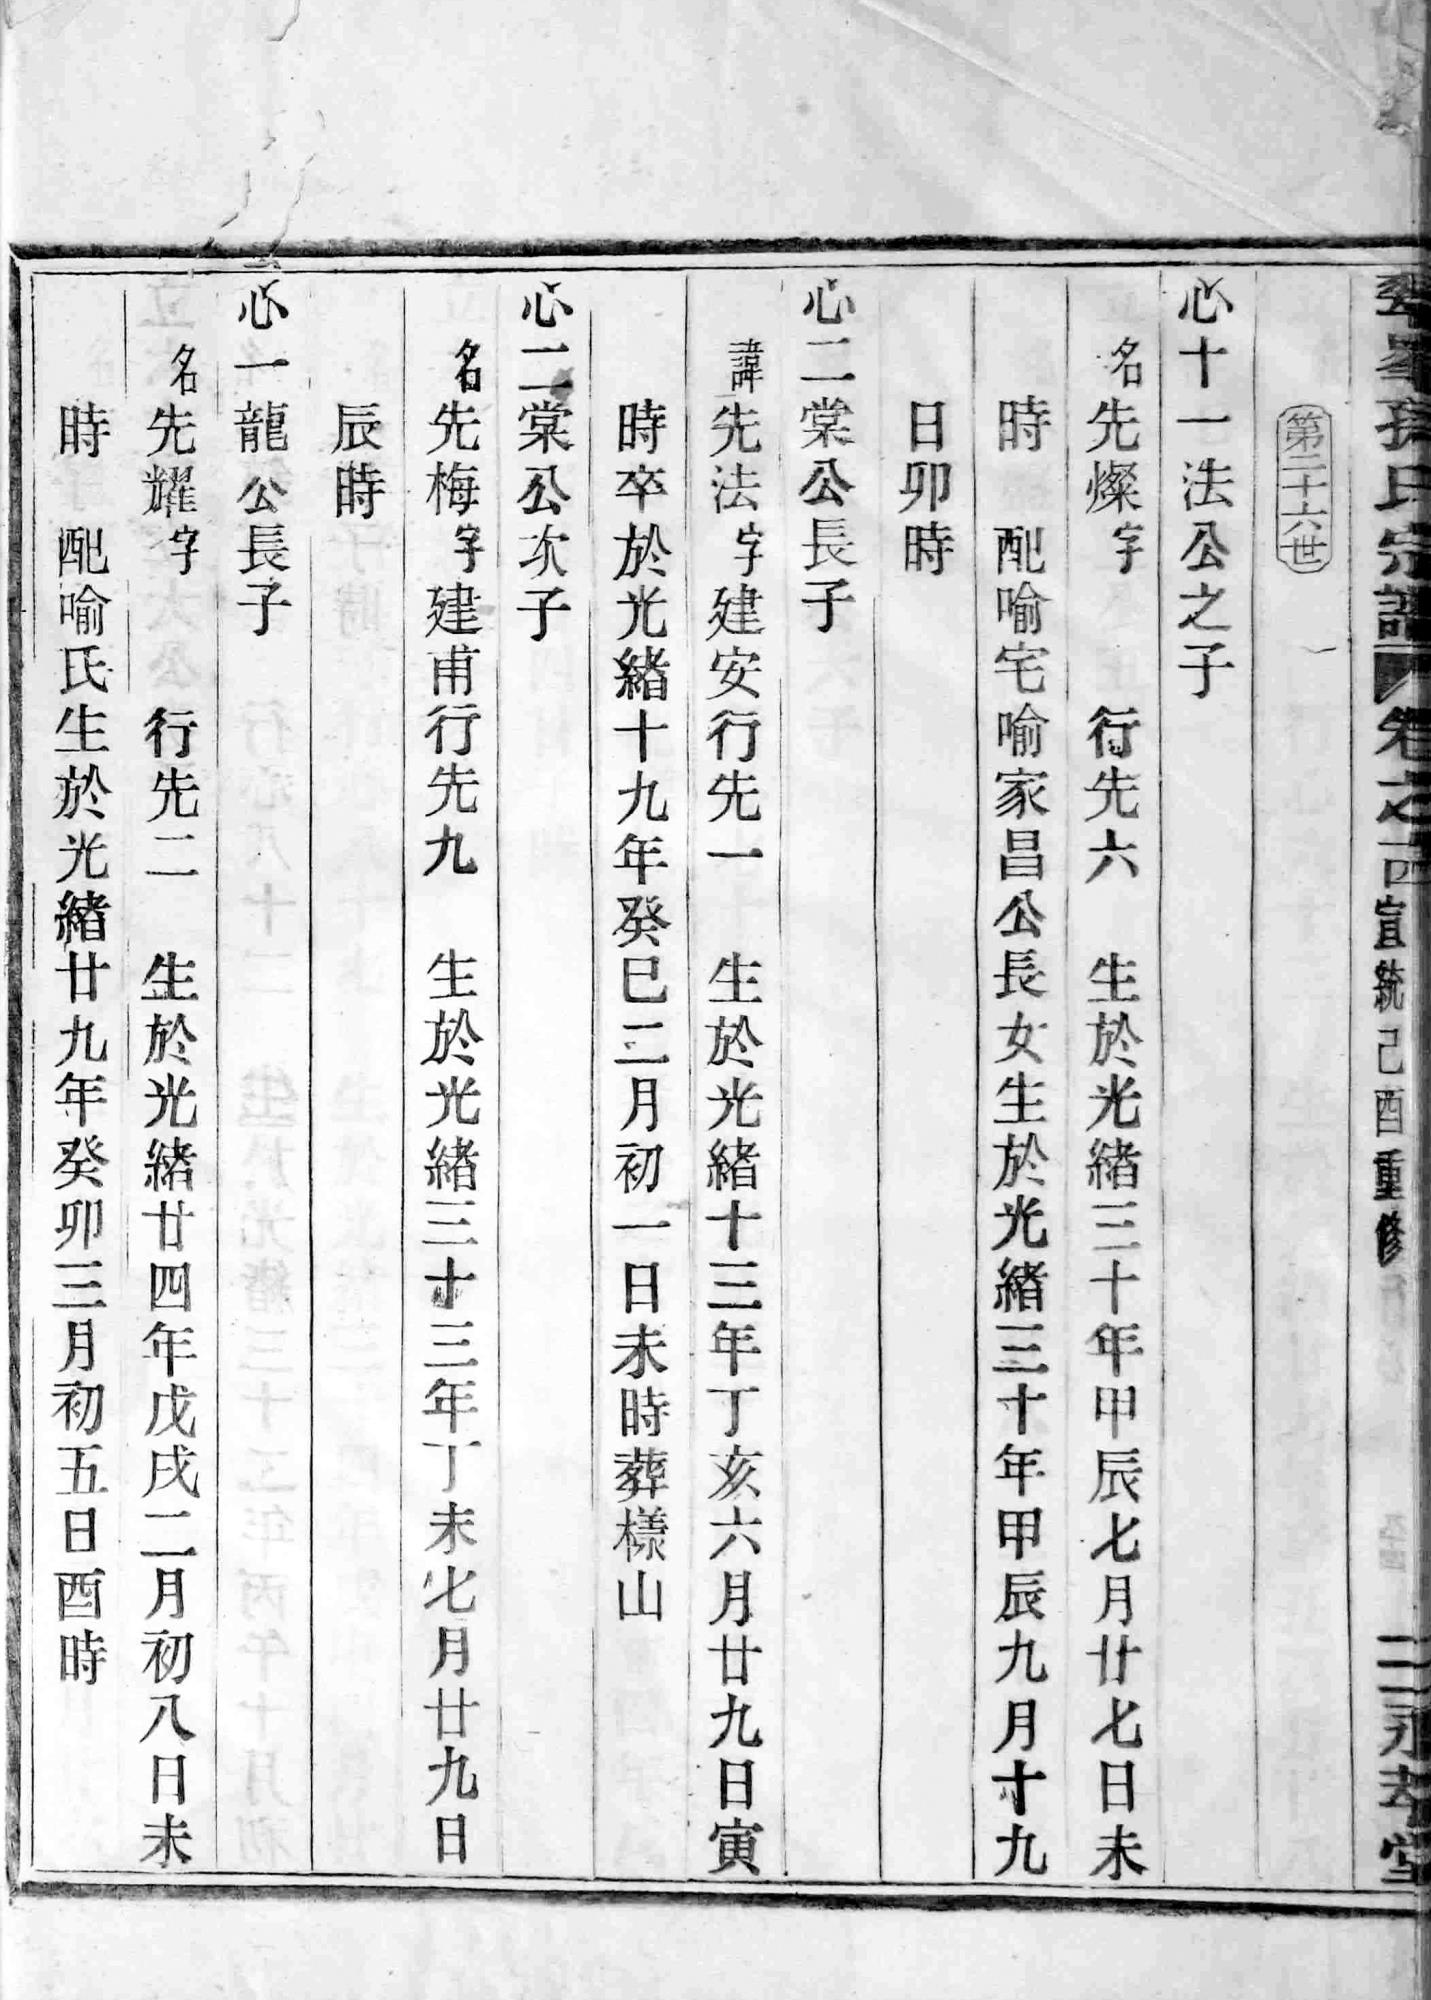 孫氏宗譜 卷之四 宣統己酉重修 二 永孝堂
第二十六世
心十一法公之子
名先燦字 行先六 生於光緒三十年甲辰七月廿七日未
時 配喻宅喻家昌公長女生於光緒三十年甲辰九月十九
日卯時
心二棠公長子
諱先法字建安行先一 生於光緒十三年丁亥六月廿九日寅
時卒於光緒十九年癸巳二月初一日未時葬樣山
心二棠公次子
名先梅字建甫行先九 生於光緒三十三年丁未七月廿九日
辰時
心一龍公長子
名先耀字 行先二 生於光緒廿四年戊戌二月初八日未
時 配喻氏生於光緒廿九年癸卯三月初五日酉時